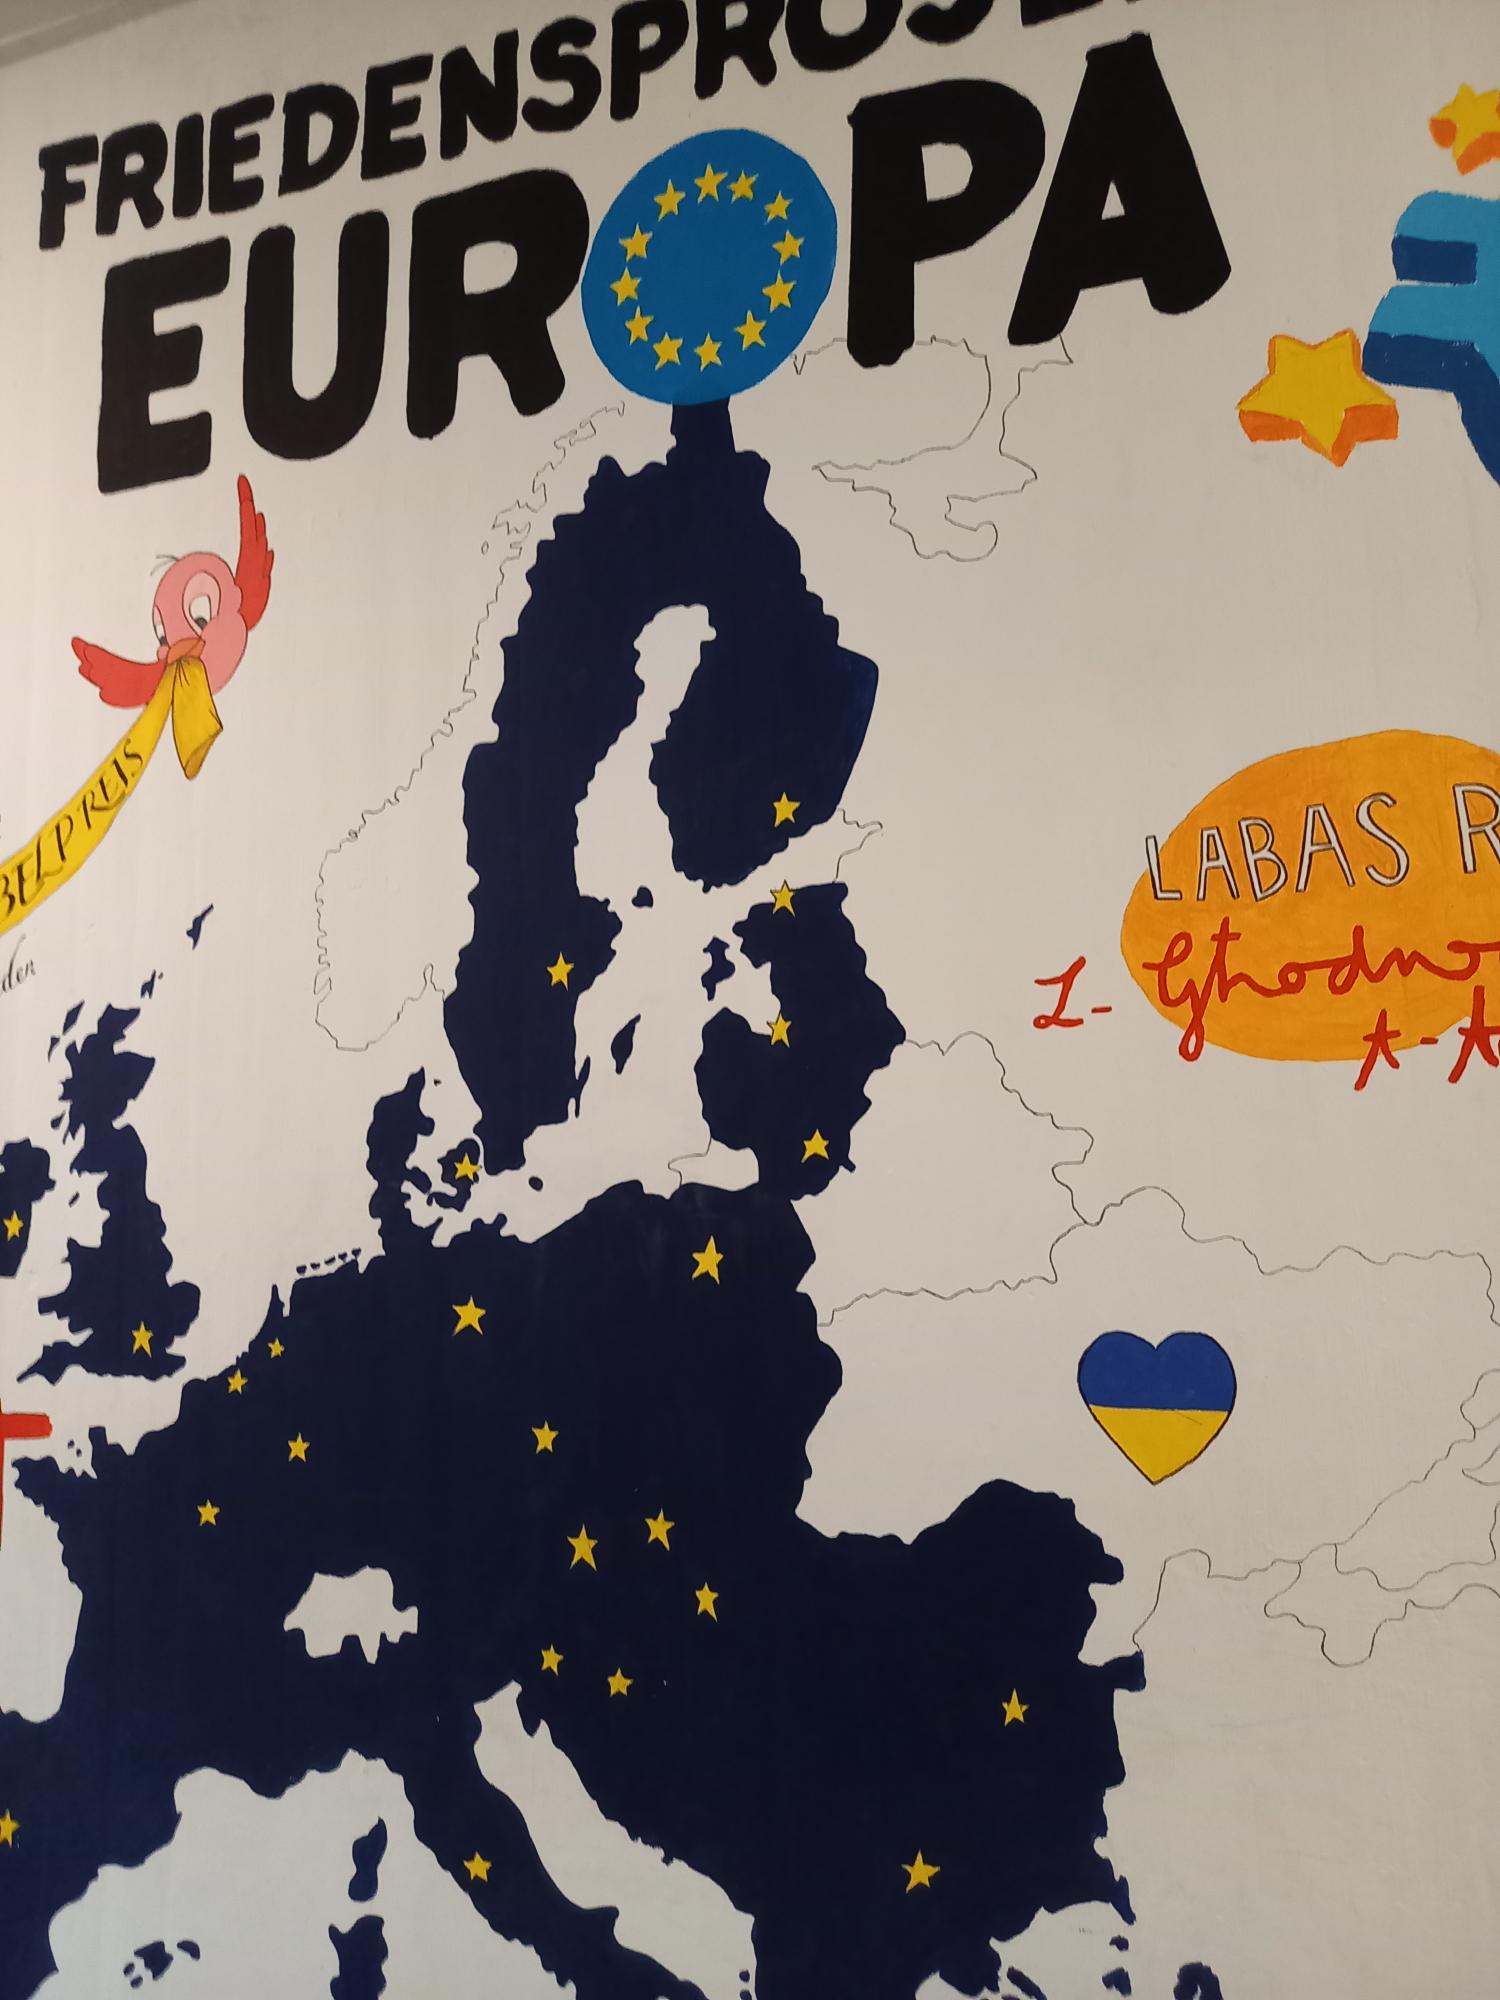 FRIEDENSPROJE
EUROPA
BELPREIS
den
LABAS R
L- Ghodno
A-A